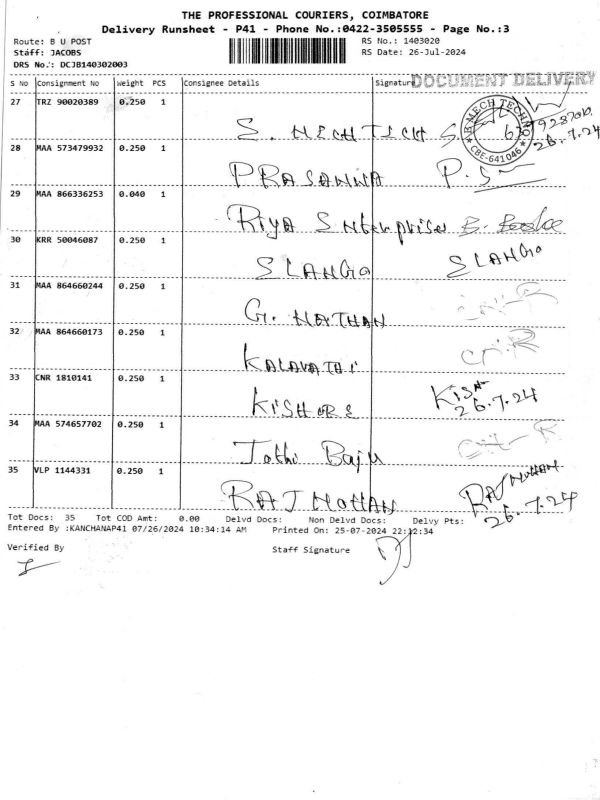 THE PROFESSIONAL COURIERS, COIMBATORE
Delivery Runsheet - P41 - Phone No.:0422-3505555 - Page No.:3
Route: B U POST
RS No.: 1403020
Staff: JACOBS
RS Date: 26-Jul-2024
DRS No.: DCJB140302003
S No Consignment No Weight PCS Consignee Details Signature
DOCUMENT DELIVERY
27 TRZ 90020389 0.250 1
S. MECH TECH
MECH TECHNO
CBE-641046
26.7.24
28 MAA 573479932 0.250 1
PRASANNA P.S
29 MAA 866336253 0.040 1
Riya Enterprises
30 KRR 50046087 0.250 1
ELANGO ELANGO
31 MAA 864660244 0.250 1
G. NATHAN
32 MAA 864660173 0.250 1
KALAVATHI
33 CNR 1810141 0.250 1
KISHORE
26.7.24
34 MAA 574657702 0.250 1
Jothi Baju
35 VLP 1144331 0.250 1
RAJ MOHAN RAJ MOHAN
26.7.24
Tot Docs: 35 Tot COD Amt: 0.00 Delvd Docs: Non Delvd Docs: Delvy Pts:
Entered By :KANCHANAP41 07/26/2024 10:34:14 AM Printed On: 25-07-2024 22:12:34
Verified By
Staff Signature